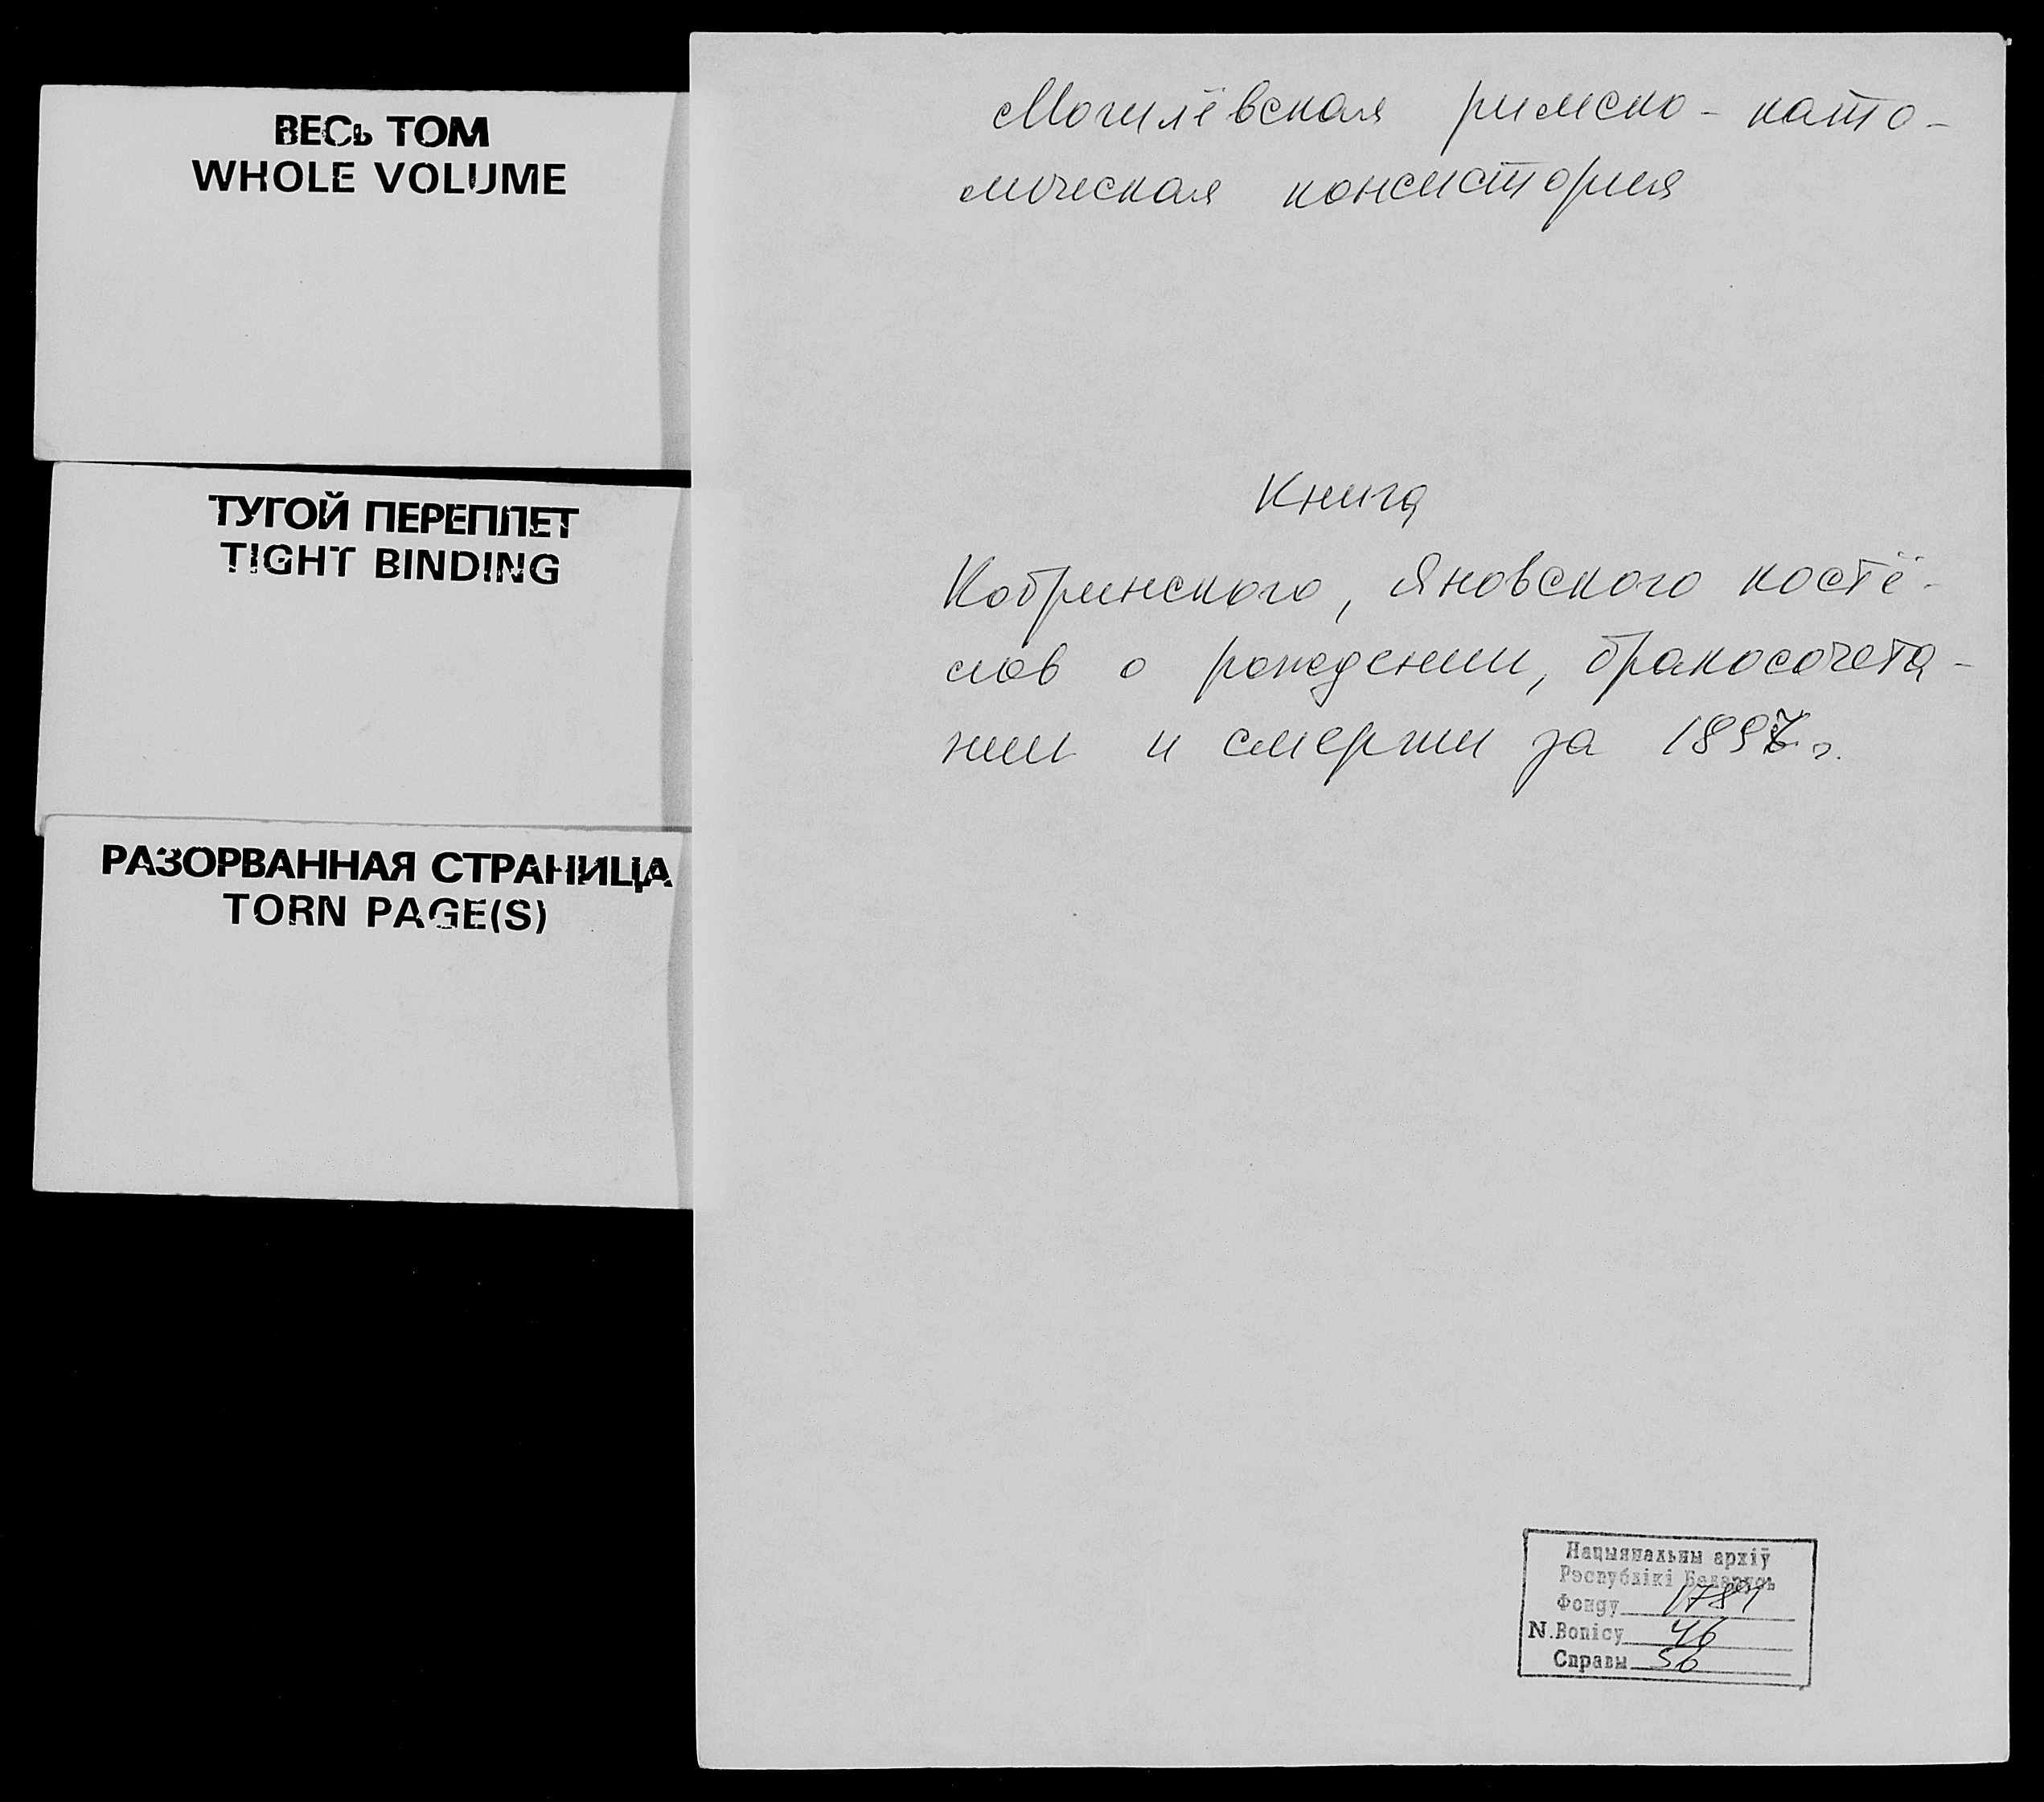 ВЕСЬ ТОМ
WHOLE VOLUME
ТУГОЙ ПЕРЕПЛЕТ
TIGHT BINDING
РАЗОРВАННАЯ СТРАНИЦА
TORN PAGE(S)
Могилёвская римско-като-
лическая консистория
Книга
Кобринского, Яновского костё-
лов о рождении, бракосочета-
нии и смерти за 1897 г.
Нацыянальны архіў
Рэспублікі Беларусь
Фонду 1781
N.Вопісу 46
Справы 56